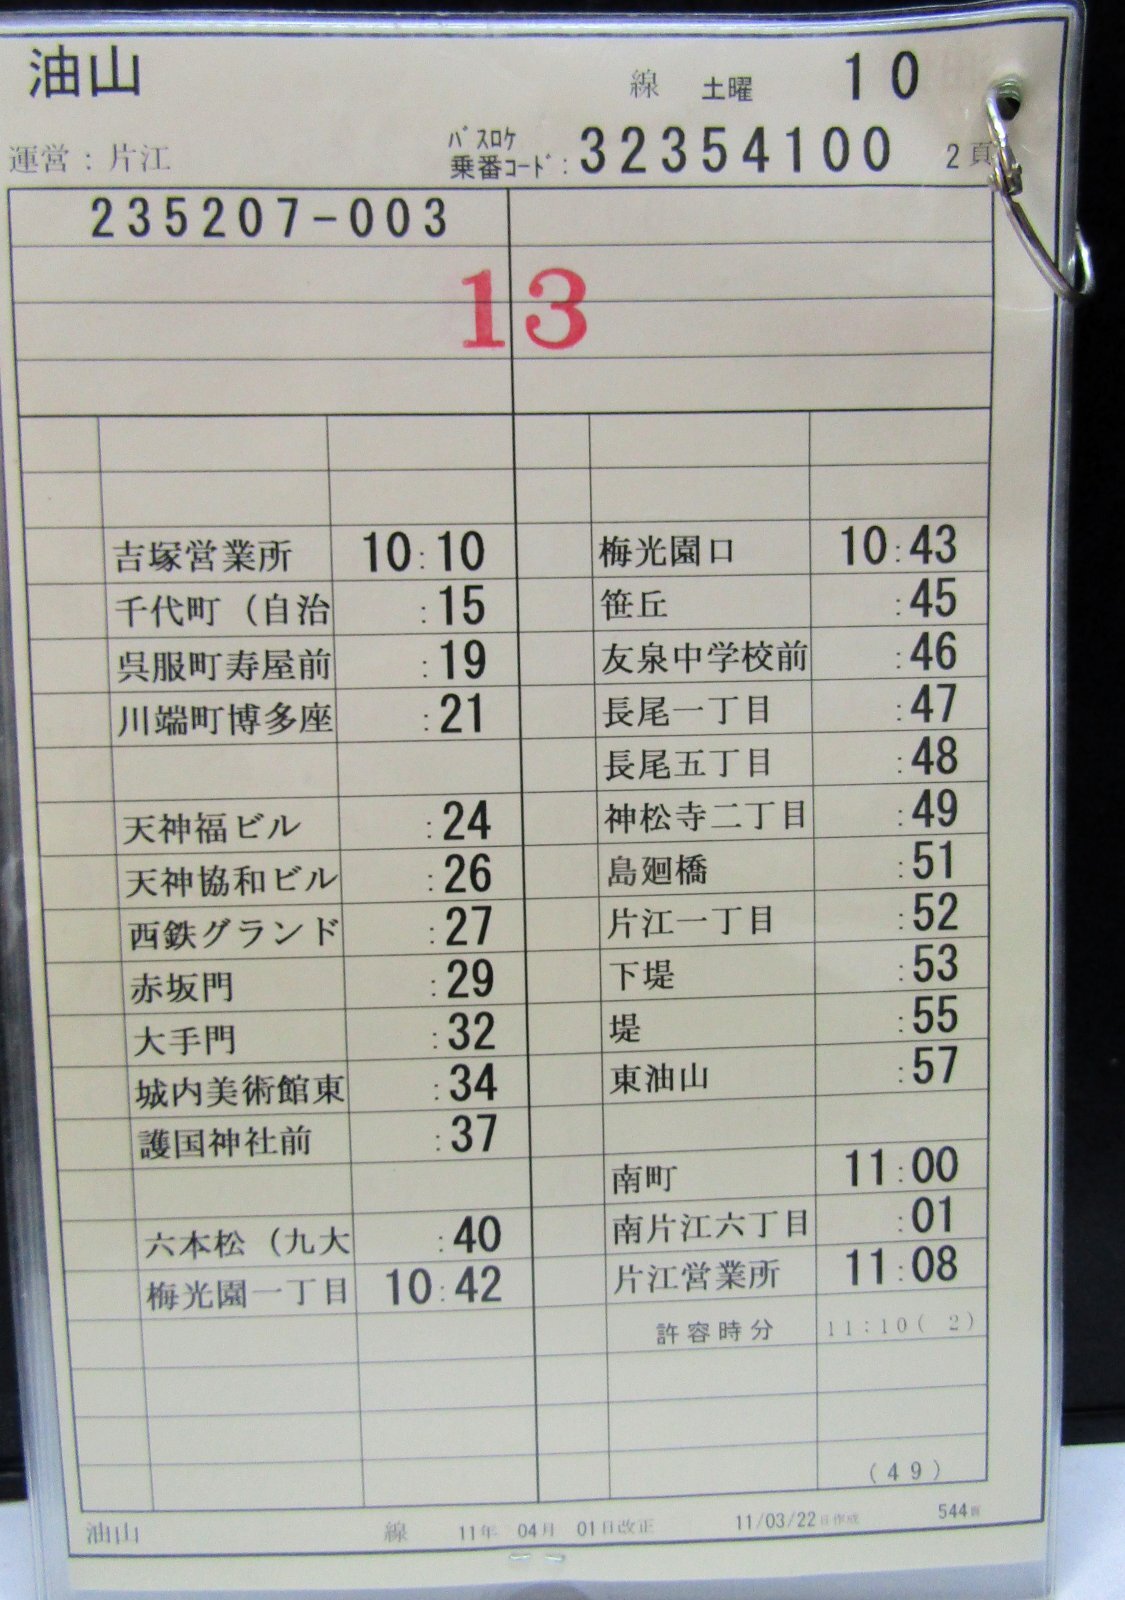 油山 線 土曜 10
運営：片江 ﾊﾞｽﾛｹ 乗番ｺｰﾄﾞ：32354100 2頁
235207-003
13
吉塚営業所 10:10
千代町（自治 :15
呉服町寿屋前 :19
川端町博多座 :21
天神福ビル :24
天神協和ビル :26
西鉄グランド :27
赤坂門 :29
大手門 :32
城内美術館東 :34
護国神社前 :37
六本松（九大 :40
梅光園一丁目 10:42
梅光園口 10:43
笹丘 :45
友泉中学校前 :46
長尾一丁目 :47
長尾五丁目 :48
神松寺二丁目 :49
島廻橋 :51
片江一丁目 :52
下堤 :53
堤 :55
東油山 :57
南町 11:00
南片江六丁目 :01
片江営業所 11:08
許容時分 11:10( 2)
(49)
油山 線 11年 04月 01日改正 11/03/22日作成 544頁